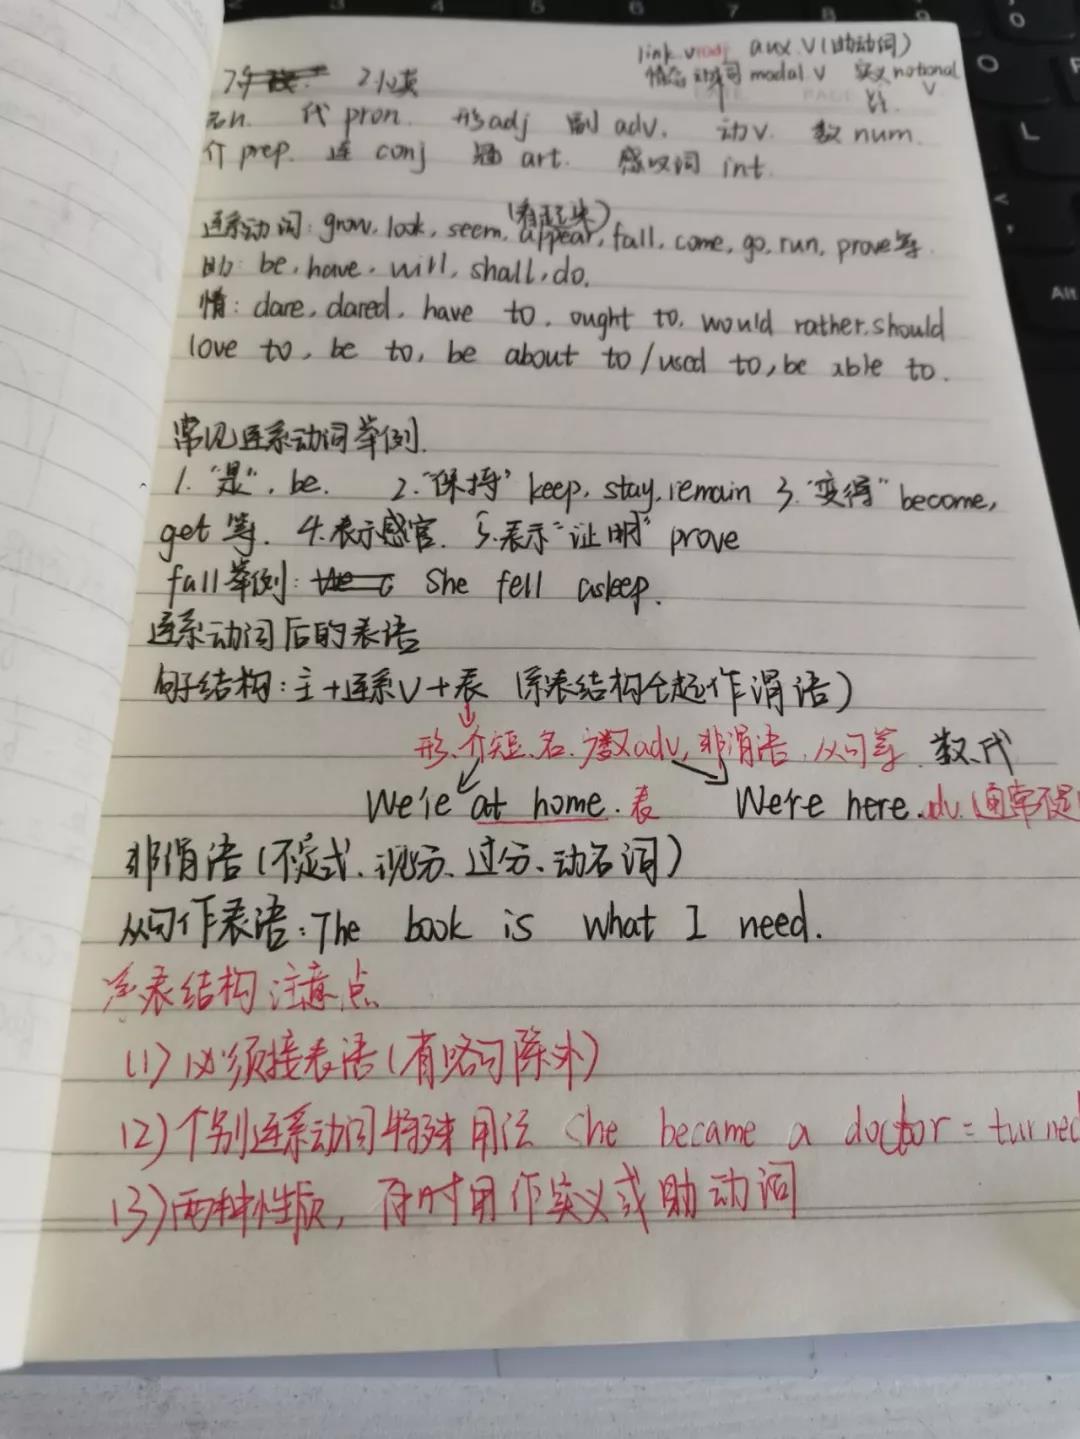 link.v aux.v(助动词)
情态动词 modal.v 实义 notional v
名n. 代 pron. 形adj 副 adv. 动v. 数 num.
介 prep. 连 conj 冠 art. 感叹词 int.
(看起来)
连系动词: grow, look, seem, appear, fall, come, go, run, prove等.
助: be, have, will, shall, do.
情: dare, dared, have to, ought to, would rather, should
love to, be to, be about to/used to, be able to.
常见连系动词举例.
1. "是", be. 2. "保持" keep, stay, remain 3. "变得" become,
get 等. 4.表示感官. 5.表示"证明" prove
fall举例: She fell asleep.
连系动词后的表语
句子结构: 主+连系V+表 (系表结构仝起作谓语)
形、介短、名、数adv, 非谓语、从句等 数、代
We're at home. 表 We're here. adv. (通常不是
非谓语(不定式、现分、过分、动名词)
从句作表语: The book is what I need.
系表结构注意点
(1)必须接表语(省略句除外)
(2)个别连系动词特殊用法 She became a doctor = turned
(3)两种性质, 有时用作实义或助动词